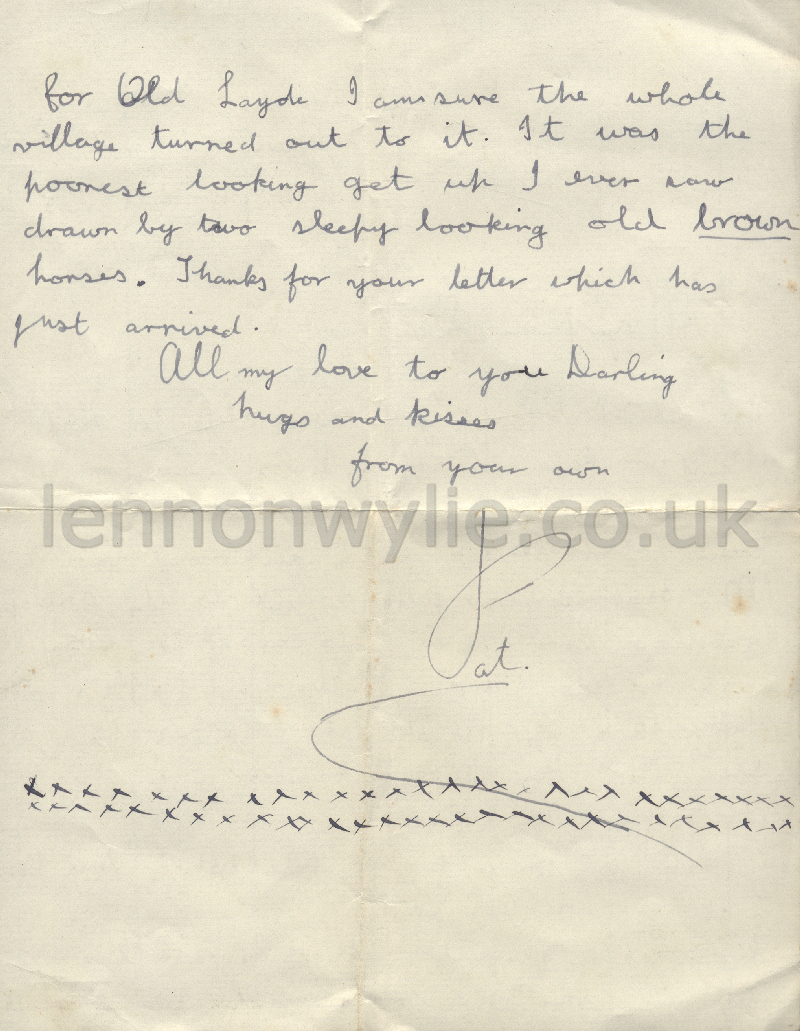 for Old Layde I am sure the whole
village turned out to it. It was the
poorest looking get up I ever saw
drawn by two sleepy looking old brown
horses. Thanks for your letter which has
just arrived.
All my love to you Darling
hugs and kisses
from your own
lennonwylie.co.uk
Pat.
x x x x x x x x x x x x x x x x x x x x x x x x x x x x
x x x x x x x x x x x x x x x x x x x x x x x x x x x x